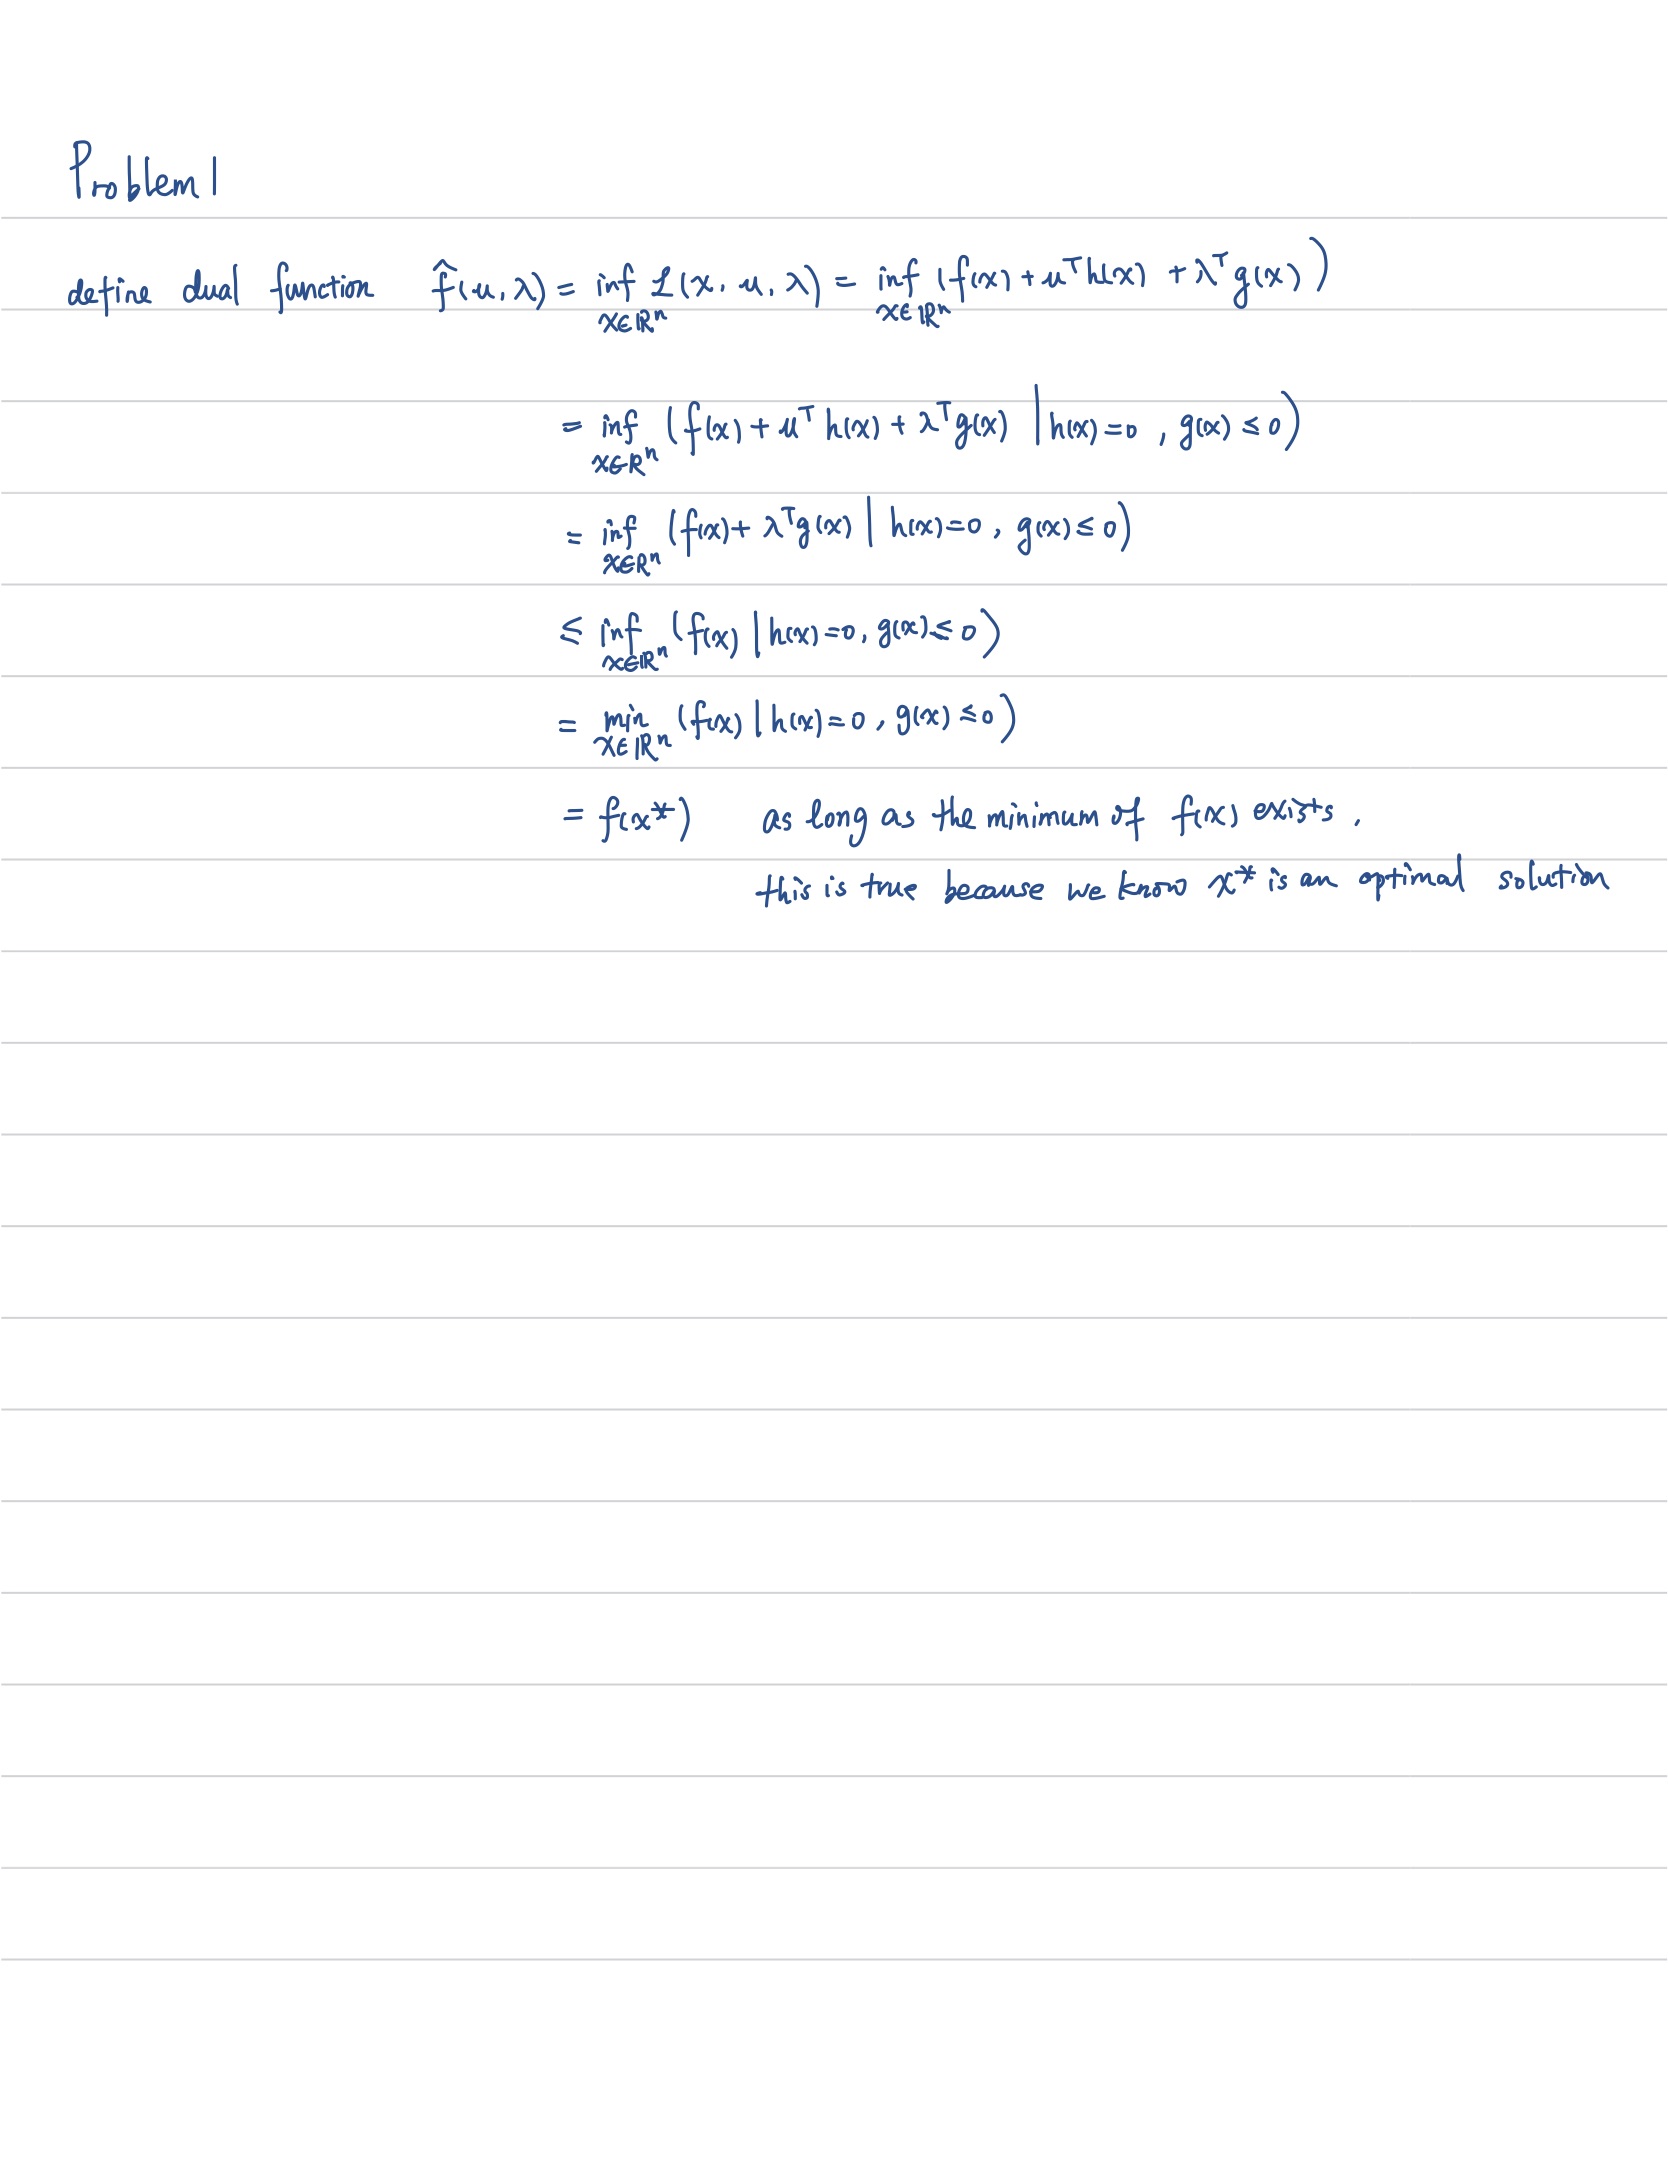 Problem 1
define dual function f̂(u, λ) = inf_{x∈ℝⁿ} ℒ(x, u, λ) = inf_{x∈ℝⁿ} (f(x) + uᵀh(x) + λᵀg(x))
= inf_{x∈ℝⁿ} (f(x) + uᵀh(x) + λᵀg(x) | h(x)=0, g(x) ≤ 0)
= inf_{x∈ℝⁿ} (f(x) + λᵀg(x) | h(x)=0, g(x) ≤ 0)
≤ inf_{x∈ℝⁿ} (f(x) | h(x)=0, g(x) ≤ 0)
= min_{x∈ℝⁿ} (f(x) | h(x)=0, g(x) ≤ 0)
= f(x*) as long as the minimum of f(x) exists,
this is true because we know x* is an optimal solution